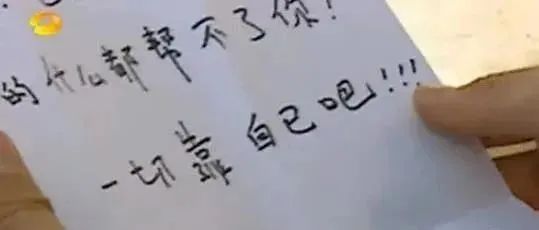 的什么都帮不了你!
一切靠自己吧!!!